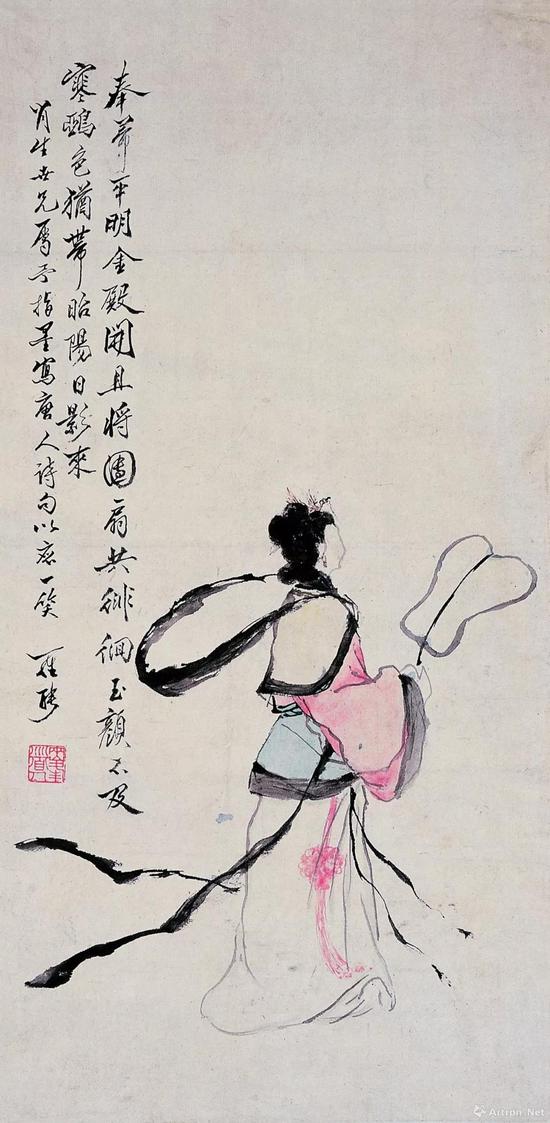 奉箒平明金殿開且將團扇共徘徊玉顏不及
寒鵶色猶帶昭陽日影來
肖生世兄屬予指墨寫唐人詩句以應一笑 羅聘
Artron.Net